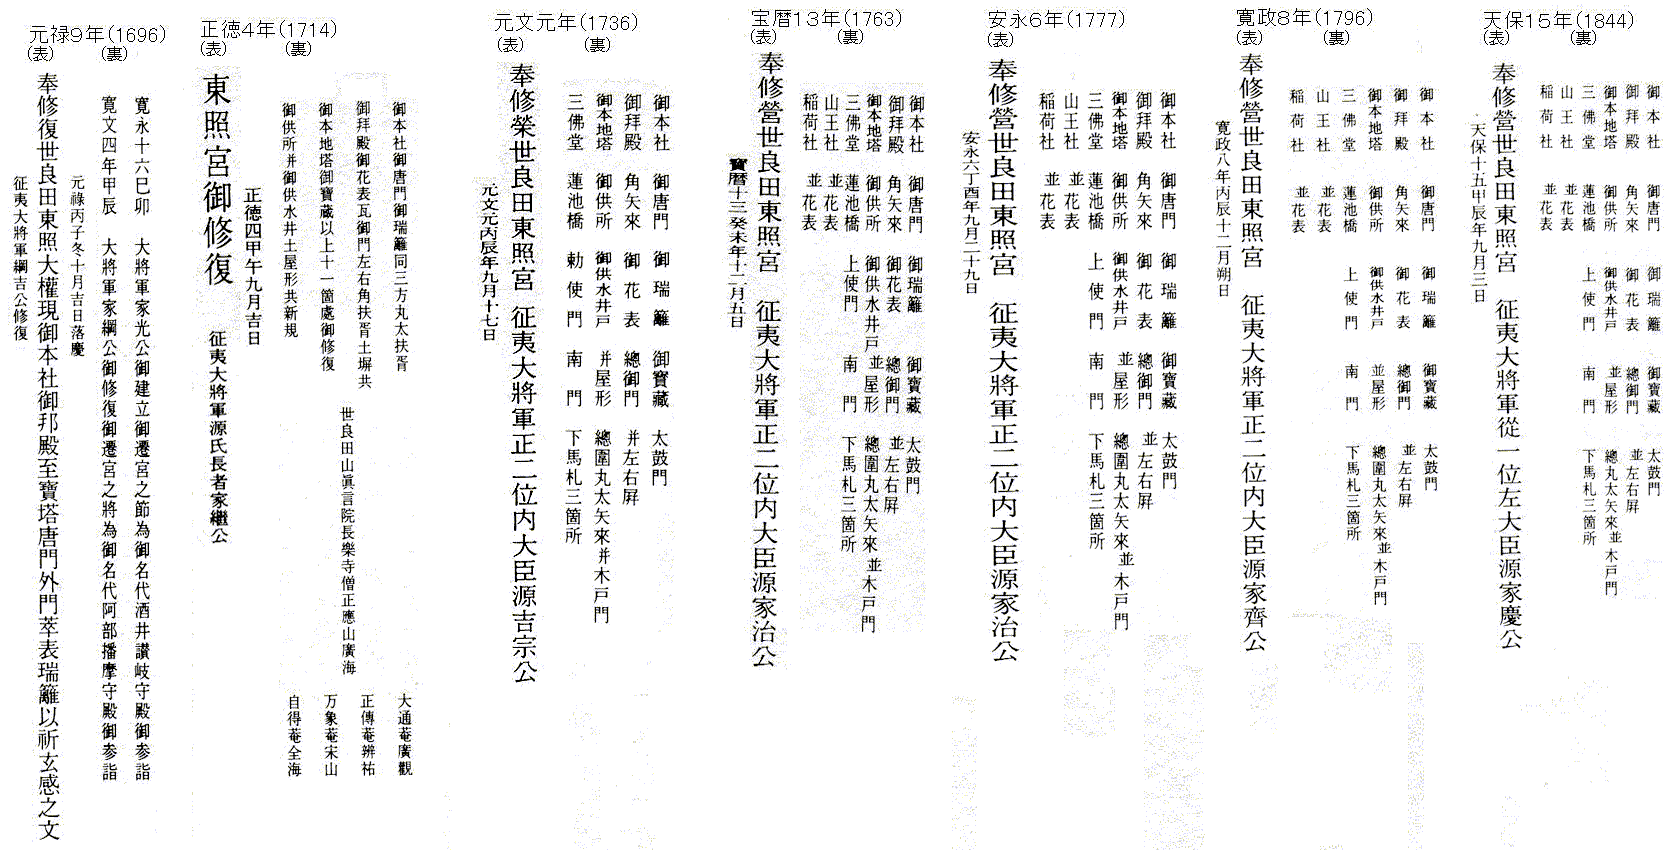 元禄9年(1696)
(表)
奉修復世良田東照大權現御本社御邦殿至寶塔唐門外門萃表瑞籬以祈玄感之文
元祿丙子冬十月吉日落慶
征夷大將軍綱吉公修復
(裏)
寛永十六巳卯 大將軍家光公御建立御遷宮之節為御名代酒井讃岐守殿御参詣
寛文四年甲辰 大將軍家綱公御修復御遷宮之將為御名代阿部播摩守殿御参詣
正徳4年(1714)
(表)
東照宮御修復
正德四甲午九月吉日
征夷大將軍源氏長者家繼公
(裏)
御本社御唐門御瑞籬同三方丸太扶胥
御拜殿御花表瓦御門左右角扶胥土塀共
御本地塔御寶藏以上十一箇處御修復
御供所并御供水井土屋形共新規
世良田山眞言院長樂寺僧正應山廣海
大通菴廣觀
正傳菴辨祐
万象菴宋山
自得菴全海
元文元年(1736)
(表)
奉修榮世良田東照宮 征夷大將軍正二位内大臣源吉宗公
元文元丙辰年九月十七日
(裏)
御本社 御唐門 御瑞籬 御寶藏 太鼓門
御拜殿 角矢來 御花表 總御門 并左右屏
御本地塔 御供所 御供水井戸 并屋形 總圍丸太矢來并木戸門
三佛堂 蓮池橋 勅使門 南門 下馬札三箇所
宝暦13年(1763)
(表)
奉修營世良田東照宮 征夷大將軍正二位内大臣源家治公
寶曆十三癸未年十二月五日
(裏)
御本社 御唐門 御瑞籬 御寶藏 太鼓門
御拜殿 角矢來 御花表 總御門 並左右屏
御本地塔 御供所 御供水井戸 並屋形 總圍丸太矢來並木戸門
三佛堂 蓮池橋 上使門 南門 下馬札三箇所
山王社 並花表
稲荷社 並花表
安永6年(1777)
(表)
奉修營世良田東照宮 征夷大將軍正二位内大臣源家治公
安永六丁酉年九月二十九日
御本社 御唐門 御瑞籬 御寶藏 太鼓門
御拜殿 角矢來 御花表 總御門 並左右屏
御本地塔 御供所 御供水井戸 並屋形 總圍丸太矢來並木戸門
三佛堂 蓮池橋 上使門 南門 下馬札三箇所
山王社 並花表
稲荷社 並花表
寛政8年(1796)
(表)
奉修營世良田東照宮 征夷大將軍正二位内大臣源家齊公
寛政八年丙辰十二月朔日
(裏)
御本社 御唐門 御瑞籬 御寶藏 太鼓門
御拜殿 角矢來 御花表 總御門 並左右屏
御本地塔 御供所 御供水井戸 並屋形 總圍丸太矢來並木戸門
三佛堂 蓮池橋 上使門 南門 下馬札三箇所
山王社 並花表
稲荷社 並花表
天保15年(1844)
(表)
奉修營世良田東照宮 征夷大將軍從一位左大臣源家慶公
天保十五甲辰年九月三日
(裏)
御本社 御唐門 御瑞籬 御寶藏 太鼓門
御拜殿 角矢來 御花表 總御門 並左右屏
御本地塔 御供所 御供水井戸 並屋形 總丸太矢來並木戸門
三佛堂 蓮池橋 上使門 南門 下馬札三箇所
山王社 並花表
稲荷社 並花表